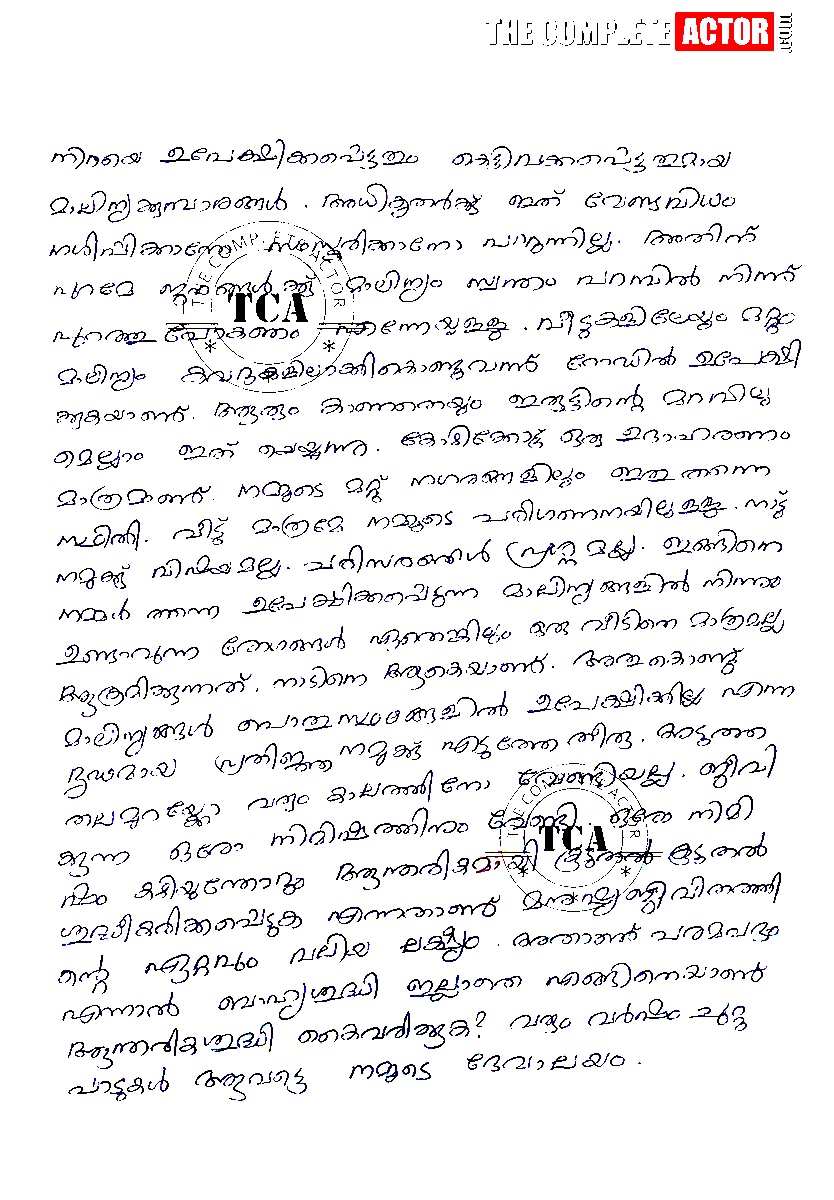 THE COMPLETE ACTOR
നിറയെ ഉപേക്ഷിക്കപ്പെട്ടതും കെട്ടിവക്കപ്പെട്ടതുമായ
മാലിന്യക്കൂമ്പാരങ്ങൾ. അധികൃതർക്ക് ഇത് വേണ്ടവിധം
നശിപ്പിക്കാനോ സംസ്കരിക്കാനോ പറ്റുന്നില്ല. അതിന്
പുറമേ ജനങ്ങൾക്ക് മാലിന്യം സ്വന്തം പറമ്പിൽ നിന്ന്
പുറത്തു പോകണം എന്നേയുള്ളു. വീട്ടുകളിലേയും മറ്റും
മാലിന്യം കവറുകളിലാക്കികൊണ്ടുവന്ന് റോഡിൽ ഉപേക്ഷി
ക്കുകയാണ്. ആരും കാണാതെയും ഇരുട്ടിന്റെ മറവിലു
മെല്ലാം ഇത് ചെയ്യുന്നു. കോഴിക്കോട് ഒരു ഉദാഹരണം
മാത്രമാണ്. നമ്മുടെ മറ്റ് നഗരങ്ങളിലും ഇതു തന്നെ
സ്ഥിതി. വീട് മാത്രമേ നമ്മുടെ പരിഗണനയിലുള്ളു. നാട്
നമുക്ക് വിഷയമല്ല. പരിസരങ്ങൾ പ്രശ്നമല്ല. ഇങ്ങിനെ
നമ്മൾ തന്നെ ഉപേക്ഷിക്കപ്പെടുന്ന മാലിന്യങ്ങളിൽ നിന്നും
ഉണ്ടാവുന്ന രോഗങ്ങൾ ഏതെങ്കിലും ഒരു വീടിനെ മാത്രമല്ല
ആക്രമിക്കുന്നത്. നാടിനെ ആകെയാണ്. അതുകൊണ്ട്
മാലിന്യങ്ങൾ പൊതുസ്ഥലങ്ങളിൽ ഉപേക്ഷിക്കില്ല എന്ന
ദൃഢമായ പ്രതിജ്ഞ നമുക്കു എടുത്തേ തീരൂ. അടുത്ത
തലമുറയ്ക്കോ വരും കാലത്തിനോ വേണ്ടിയല്ല. ജീവി
ക്കുന്ന ഓരോ നിമിഷത്തിനും വേണ്ടി. ഓരോ നിമി
ഷം കഴിയുന്തോറും ആന്തരികമായി കൂടുതൽ കൂടുതൽ
ശുദ്ധീകരിക്കപ്പെടുക എന്നതാണ് മനുഷ്യജീവിതത്തി
ന്റെ ഏറ്റവും വലിയ ലക്ഷ്യം. അതാണ് പരമപദവും
എന്നാൽ ബാഹ്യശുദ്ധി ഇല്ലാതെ എങ്ങിനെയാണ്
ആന്തരികശുദ്ധി കൈവരിക്കുക? വരും വർഷം ചുറ്റു
പാടുകൾ ആവട്ടെ നമ്മുടെ ദേവാലയം.
THE COMPLETE ACTOR
TCA
THE COMPLETE ACTOR
TCA